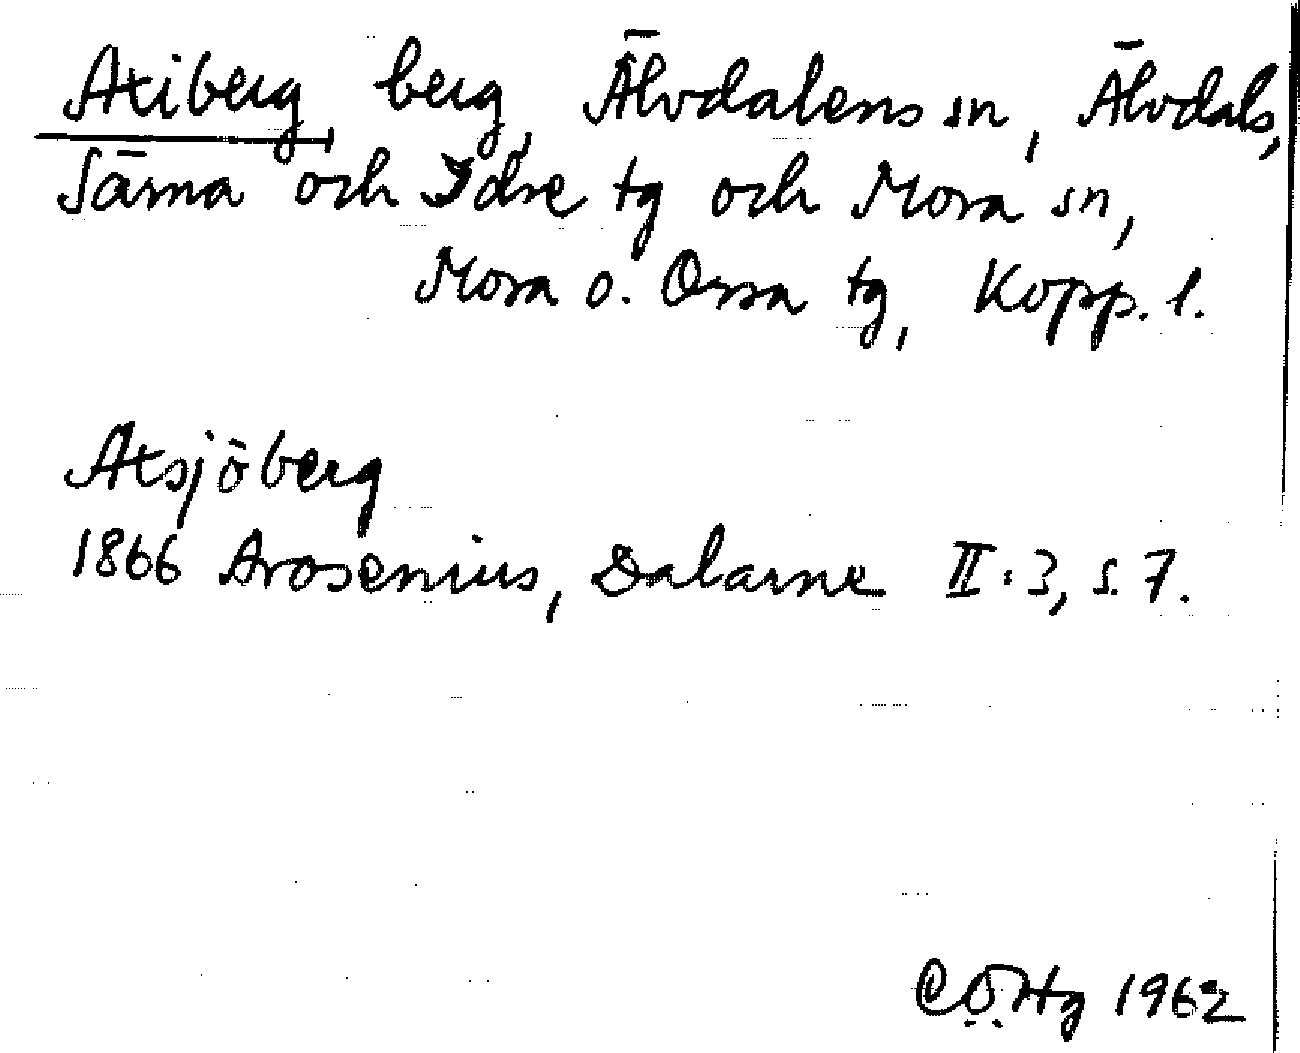 Atiberg, berg, Älvdalens sn, Älvdals,
Särna och Idre tg och Mora sn,
Mora o. Orsa tg, Kopp. l.
Atsjöberg
1866 Arosenius, Dalarne II:3, s. 7.
1962